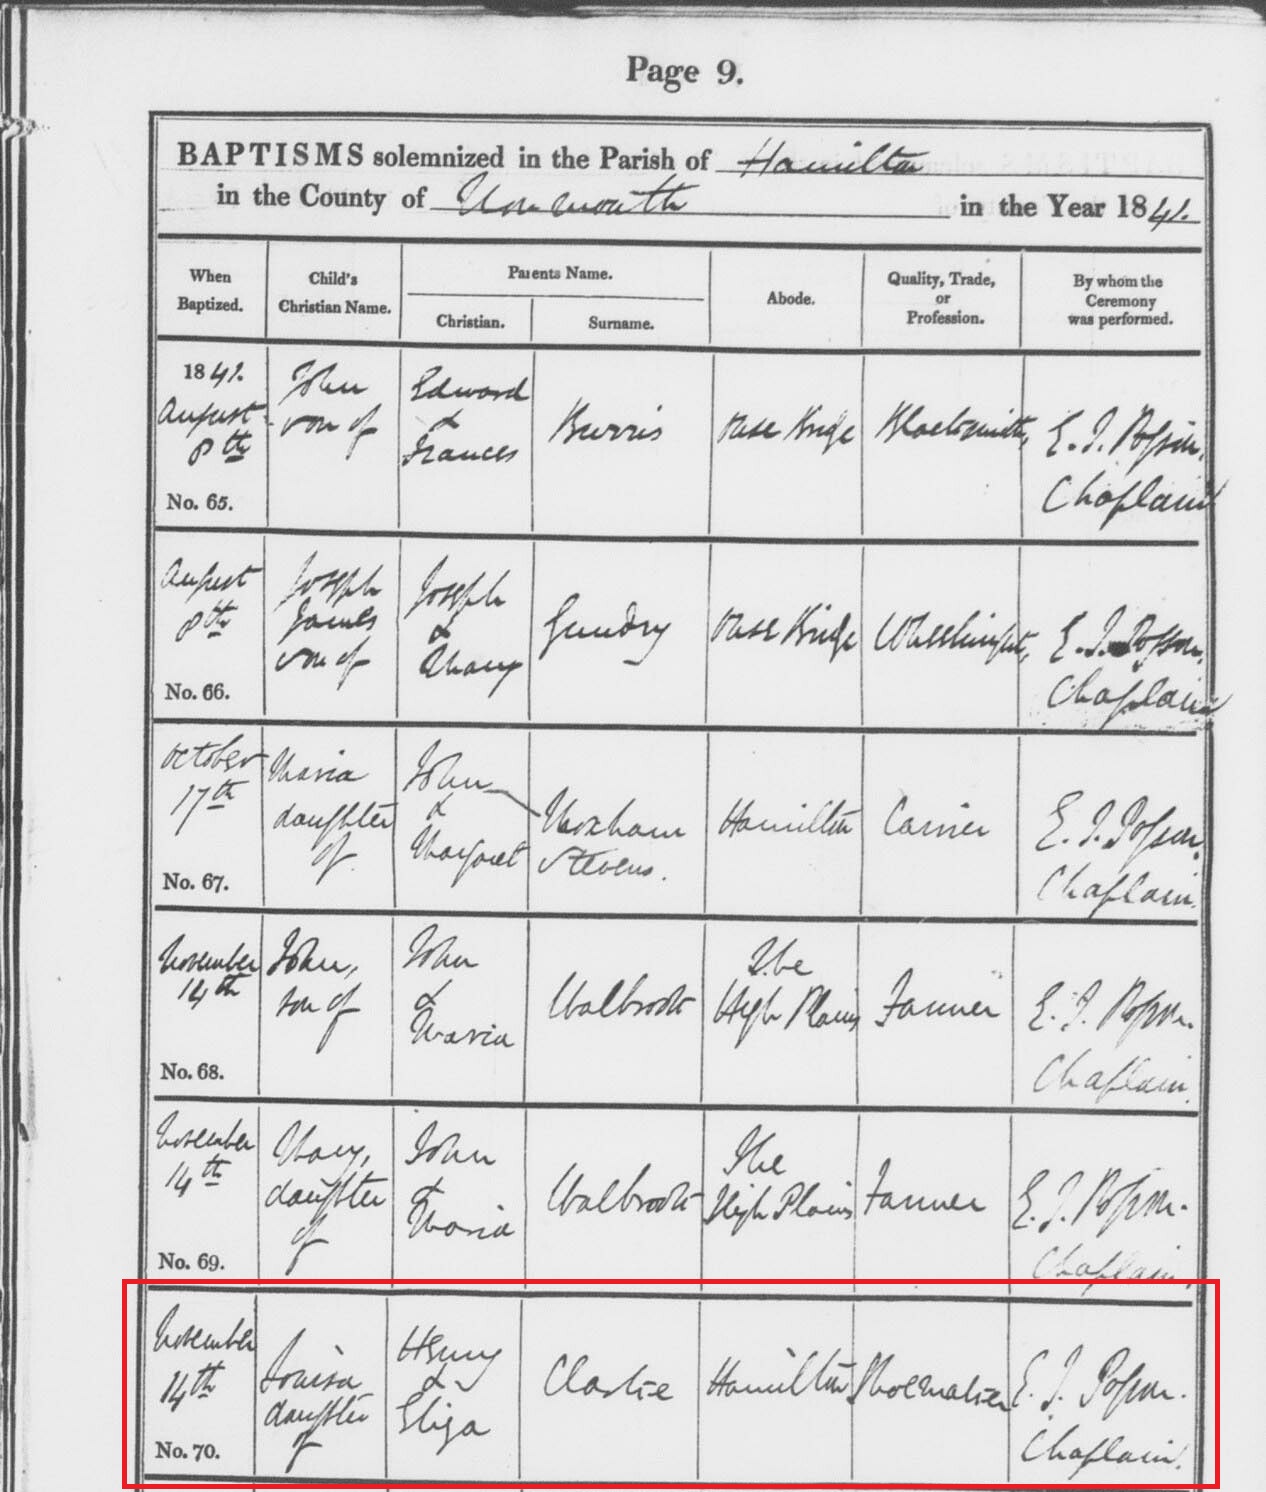 Page 9.
BAPTISMS solemnized in the Parish of Hamilton
in the County of Monmouth in the Year 1841.
When Baptized.
Child's Christian Name.
Parents Name.
Christian.
Surname.
Abode.
Quality, Trade, or Profession.
By whom the Ceremony was performed.
1841.
August
8th
No. 65.
John
son of
Edward
&
Frances
Burris
Blacksmith,
E. J.
Chaplain
August
8th
No. 66.
Joseph
James
son of
Joseph
&
Mary
Gundry
E. J.
Chaplain
October
17th
No. 67.
Maria
daughter
of
John
&
Margaret
Moxham
Stevens.
Hamilton
Carrier
E. J.
Chaplain.
November
14th
No. 68.
John,
son of
John
&
Maria
Walbrook
The
High Plains
Farmer
E. J.
Chaplain.
November
14th
No. 69.
Mary,
daughter
of
John
&
Maria
Walbrook
The
High Plains
Farmer
E. J.
Chaplain.
November
14th
No. 70.
Louisa
daughter
of
Henry
&
Eliza
Clarke
Hamilton
Shoemaker
E. J.
Chaplain.